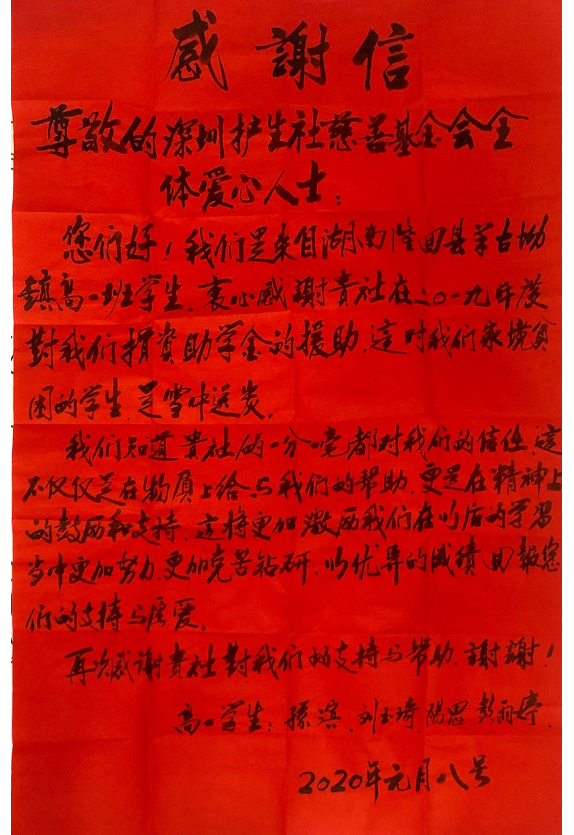 感謝信
尊敬的深圳护生社慈善基金会全
体爱心人士：
您们好！我们是来自湖南隆回县羊古坳
鎮高一班学生，衷心感謝貴社在二〇一九年度
對我们捐資助学金的援助，這对我们家境貧
困的学生，是雪中送炭。
我们知道貴社的一分一毫都对我们的信任，這
不仅仅是在物质上给与我们的帮助，更是在精神上
的鼓励和支持，這将更加激励我们在以后的学習
当中更加努力，更加克苦钻研，以优异的成績回報您
们的支持与厚爱。
再次感谢貴社對我们的支持与帮助，謝謝！
高一学生：孫滨、刘玉琦、陽思、彭雨婷，
2020年元月八号